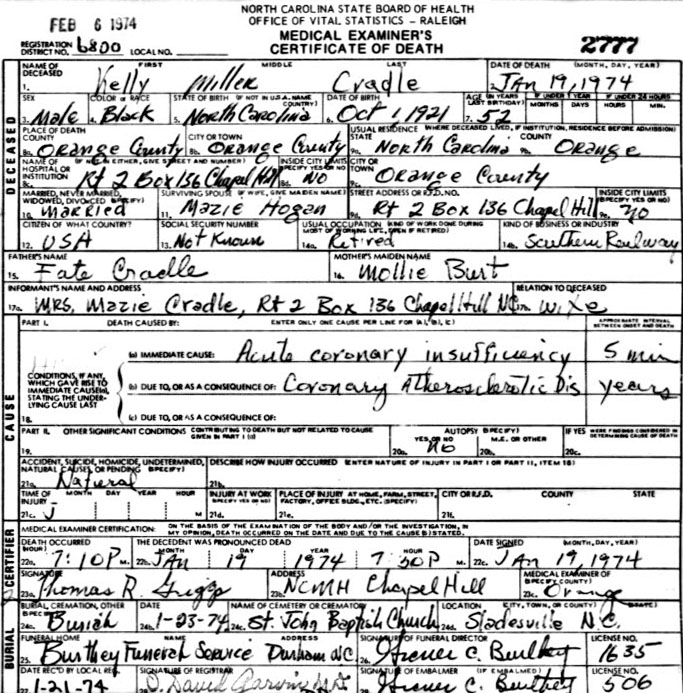 NORTH CAROLINA STATE BOARD OF HEALTH
OFFICE OF VITAL STATISTICS - RALEIGH
FEB 6 1974
MEDICAL EXAMINER'S
CERTIFICATE OF DEATH
REGISTRATION DISTRICT NO. 6800 LOCAL NO. 2777
NAME OF DECEASED FIRST MIDDLE LAST DATE OF DEATH (MONTH, DAY, YEAR)
1. Kelly Miller Cradle 2. JAN 19, 1974
SEX COLOR OR RACE STATE OF BIRTH (IF NOT IN U.S.A. NAME COUNTRY) DATE OF BIRTH AGE (IN YEARS LAST BIRTHDAY) IF UNDER 1 YEAR MONTHS DAYS IF UNDER 24 HOURS HOURS MIN.
3. Male 4. Black 5. North Carolina 6. Oct 1, 1921 7. 52
PLACE OF DEATH COUNTY CITY OR TOWN USUAL RESIDENCE WHERE DECEASED LIVED, IF INSTITUTION, RESIDENCE BEFORE ADMISSION)
8a. Orange County 8b. Orange County 9a. North Carolina 9b. Orange
NAME OF HOSPITAL OR INSTITUTION (IF NOT IN EITHER, GIVE STREET AND NUMBER) INSIDE CITY LIMITS SPECIFY YES OR NO CITY OR TOWN
8c. Rt 2 Box 136 Chapel Hill 8d. NO 9c. Orange County
MARRIED, NEVER MARRIED, WIDOWED, DIVORCED (SPECIFY) SURVIVING SPOUSE (IF WIFE, GIVE MAIDEN NAME) STREET ADDRESS OR R.F.D. NO. INSIDE CITY LIMITS
10. Married 11. Mazie Hogan 9d. Rt 2 Box 136 Chapel Hill 9e. NO
CITIZEN OF WHAT COUNTRY? SOCIAL SECURITY NUMBER USUAL OCCUPATION (KIND OF WORK DONE DURING MOST OF WORKING LIFE, EVEN IF RETIRED) KIND OF BUSINESS OR INDUSTRY
12. USA 13. Not Known 14a. Retired 14b. Southern Railway
FATHER'S NAME MOTHER'S MAIDEN NAME
15. Fate Cradle 16. Mollie Burt
INFORMANT'S NAME AND ADDRESS RELATION TO DECEASED
17a. MRS. Mazie Cradle, Rt 2 Box 136 Chapel Hill NC wife
PART I. DEATH CAUSED BY: ENTER ONLY ONE CAUSE PER LINE FOR (a), (b), (c) APPROXIMATE INTERVAL BETWEEN ONSET AND DEATH
(a) IMMEDIATE CAUSE: Acute coronary insufficiency 5 min
CONDITIONS, IF ANY, WHICH GAVE RISE TO IMMEDIATE CAUSE(a), STATING THE UNDERLYING CAUSE LAST
(b) DUE TO, OR AS A CONSEQUENCE OF: Coronary Atherosclerotic Dis years
18. (c) DUE TO, OR AS A CONSEQUENCE OF:
PART II. OTHER SIGNIFICANT CONDITIONS CONTRIBUTING TO DEATH BUT NOT RELATED TO CAUSE GIVEN IN PART I (a) AUTOPSY (SPECIFY) YES OR NO M.E. OR OTHER IF YES WERE FINDINGS CONSIDERED IN DETERMINING CAUSE OF DEATH
19. 20a. No 20b. 20c.
ACCIDENT, SUICIDE, HOMICIDE, UNDETERMINED, NATURAL CAUSES, OR PENDING (SPECIFY) DESCRIBE HOW INJURY OCCURRED (ENTER NATURE OF INJURY IN PART I OR PART II, ITEM 18)
21a. Natural 21b.
TIME OF INJURY - MONTH DAY YEAR HOUR INJURY AT WORK (SPECIFY YES OR NO) PLACE OF INJURY AT HOME, FARM, STREET, FACTORY, OFFICE BLDG., ETC. (SPECIFY) CITY OR R.F.D. COUNTY STATE
21c. M 21d. 21e. 21f.
MEDICAL EXAMINER CERTIFICATION: ON THE BASIS OF THE EXAMINATION OF THE BODY AND/OR THE INVESTIGATION, IN MY OPINION, DEATH OCCURRED ON THE DATE AND DUE TO THE CAUSE(S) STATED.
DEATH OCCURRED HOUR THE DECEDENT WAS PRONOUNCED DEAD MONTH DAY YEAR HOUR DATE SIGNED (MONTH, DAY, YEAR)
22a. 7:10P M. 22b. JAN 19 1974 7:30P M 22c. JAN 19, 1974
SIGNATURE ADDRESS MEDICAL EXAMINER OF (SPECIFY COUNTY)
Thomas R. Griggs NCMH Chapel Hill 23c. Orange
BURIAL, CREMATION, OTHER (SPECIFY) DATE NAME OF CEMETERY OR CREMATORY LOCATION (CITY, TOWN, OR COUNTY) (STATE)
24a. Burial 24b. 1-23-74 24c. St. John Baptist Church 24d. Sladesville N.C.
FUNERAL HOME NAME ADDRESS SIGNATURE OF FUNERAL DIRECTOR LICENSE NO.
25. Burthey Funeral Service Durham NC 26. C. Burthey 1635
DATE REC'D BY LOCAL REG. SIGNATURE OF REGISTRAR SIGNATURE OF EMBALMER (IF EMBALMED) LICENSE NO.
1-21-74 David Garvin C. Burthey 506
DECEASED
CAUSE
CERTIFIER
BURIAL